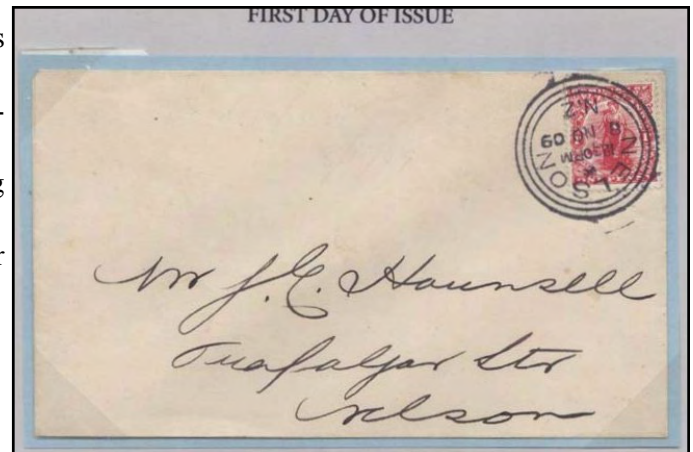 FIRST DAY OF ISSUE
NELSON
N.Z
8 NO 09
Mr J. E. Hounsell
Trafalgar Str
Nelson